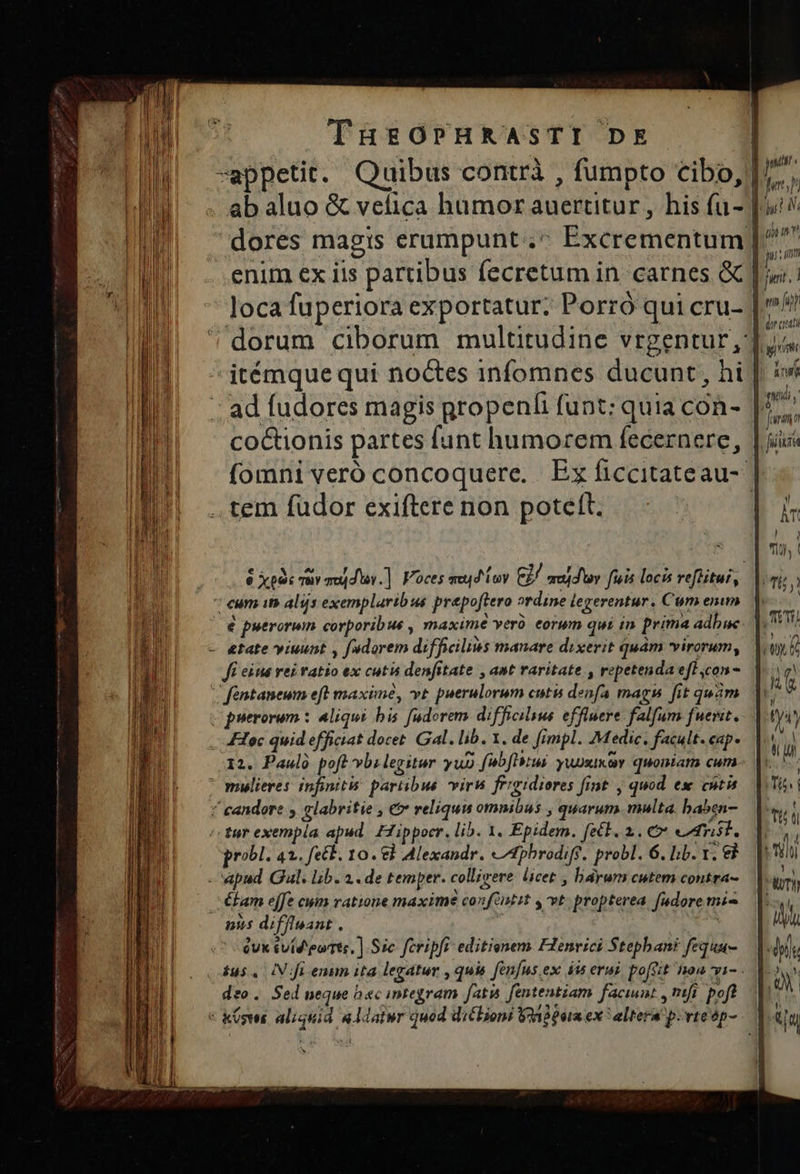 THEOPHRASTI DE
appetit. Quibus contrà, ſumpto cibo,
ab aluo & veſica humor auertitur, his ſu-
dores magis erumpunt. Excrementum
enim ex iis partibus ſecretum in carnes &
loca ſuperiora exportatur. Porrò qui cru-
dorum ciborum multitudine vrgentur,
itémque qui noctes inſomnes ducunt, hi
ad ſudores magis propenſi ſunt: quia con-
coctionis partes ſunt humorem ſecernere,
ſomni verò concoquere. Ex ſiccitate au-
tem ſudor exiſtere non poteſt.
παίδων.] Voces παιδίων & παίδων ſuis locis reſtitui,
cum in alijs exemplaribus præpoſtero ordine legerentur. Cum enim
è puerorum corporibus, maximè verò eorum qui in prima adhuc
ætate viuunt, ſudorem difficiliùs manare dixerit quàm virorum,
ſi eius rei ratio ex cutis denſitate, aut raritate, repetenda eſt, con-
ſentaneum eſt maximè, vt puerulorum cutis denſa magis ſit quàm
puerorum: aliqui his ſudorem difficilius effluere falſum fuerit.
Hoc quid efficiat docet Gal. lib. 1. de ſimpl. Medic. facult. cap.
12. Paulò poſt vbi legitur ſubſtitui γυναικῶν quoniam cum
mulieres infinitis partibus viris frigidiores ſint, quod ex cutis
candore, glabritie, & reliquis omnibus, quarum multa haben-
tur exempla apud Hippocr. lib. 1. Epidem. ſect. 2. & Ariſt.
probl. 42. ſect. 10. & Alexandr. Aphrodiſſ. probl. 6. lib. 1. &
apud Gal. lib. 2. de temper. colligere licet, harum cutem contra-
ctam eſſe cum ratione maximè conſentit, vt propterea ſudore mi-
nùs diffluant.
Sic ſcripſi editionem Henrici Stephani ſequu-
tus. Ni ſi enim ita legatur, quis ſenſus ex iis erui poſſit non vi-
deo. Sed neque hæc integram ſatis ſententiam faciunt, niſi poſt
aliquid addatur quod dictioni ex altera parte op-